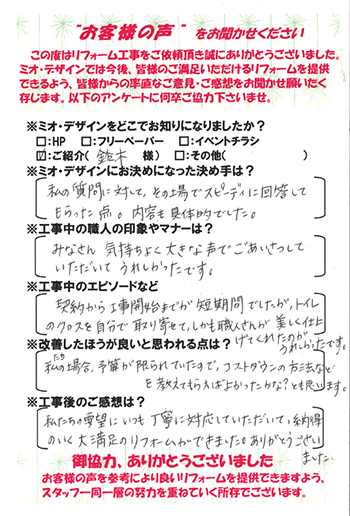 "お客様の声" をお聞かせください
この度はリフォーム工事をご依頼頂き誠にありがとうございました。
ミオ・デザインでは今後、皆様のご満足いただけるリフォームを提供
できるよう、皆様からの率直なご意見・ご感想をお聞かせ願いたく
存じます。以下のアンケートに何卒ご協力下さいませ。
※ミオ・デザインをどこでお知りになりましたか？
□:HP □:フリーペーパー □:イベントチラシ
☑:ご紹介( 鈴木 様) □:その他( )
※ミオ・デザインにお決めになった決め手は？
私の質問に対して、その場でスピーディに回答して
もらった点。内容も具体的でした。
※工事中の職人の印象やマナーは？
みなさん 気持ちよく大きな声でごあいさつして
いただいて うれしかったです。
※工事中のエピソードなど
契約から工事開始までが短期間でしたが、トイレ
のクロスを自分で取り寄せて、しかも職人さんが 美しく仕上
げてくれたのが
うれしかったです。
※改善したほうが良いと思われる点は？
私たちの場合、予算が限られていたので、コストダウンの方法など
を教えてもらえばよかったかな？とも思います。
※工事後のご感想は？
私たちの要望にいつも丁寧に対応していただいて、納得
のいく大満足のリフォームができました。ありがとうござい
ました。
御協力、ありがとうございました
お客様の声を参考により良いリフォームを提供できますよう、
スタッフ一同一層の努力を重ねていく所存でございます。